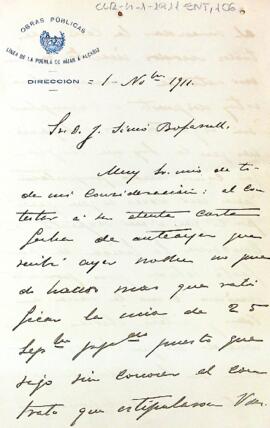 CLR-U-1-1911 ENT, 106
OBRAS PÚBLICAS
LINEA DE LA PUEBLA DE HIJAR A ALCAÑIZ
DIRECCIÓN = 1 - Nobre 1911.
Sr. D. J. Simó Bofarull.
Muy Sr. mio de to-
da mi consideración: al con
testar a su atenta carta
fecha de anteayer que
recibí ayer noche no pue
do hacer mas que rati
ficar la mia de 25
Sepbre ppdo puesto que
sigo sin conocer el con
trato que estipularon Vds.